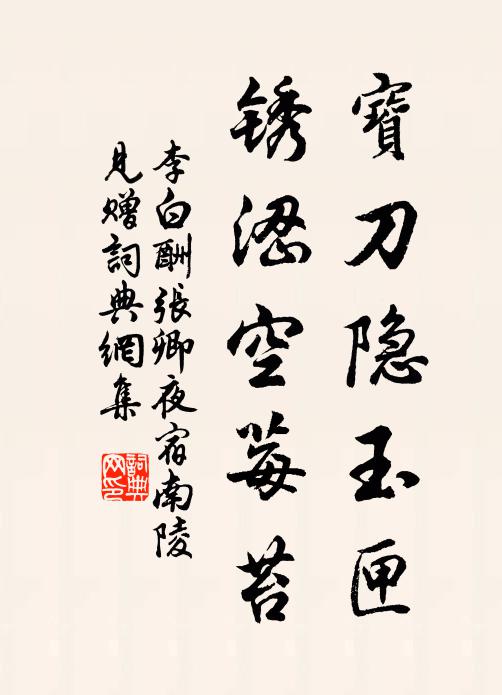 寶刀隐玉匣
锈涩空莓苔
李白酬張卿夜宿南陵
見贈詞典網集
詞典
网印